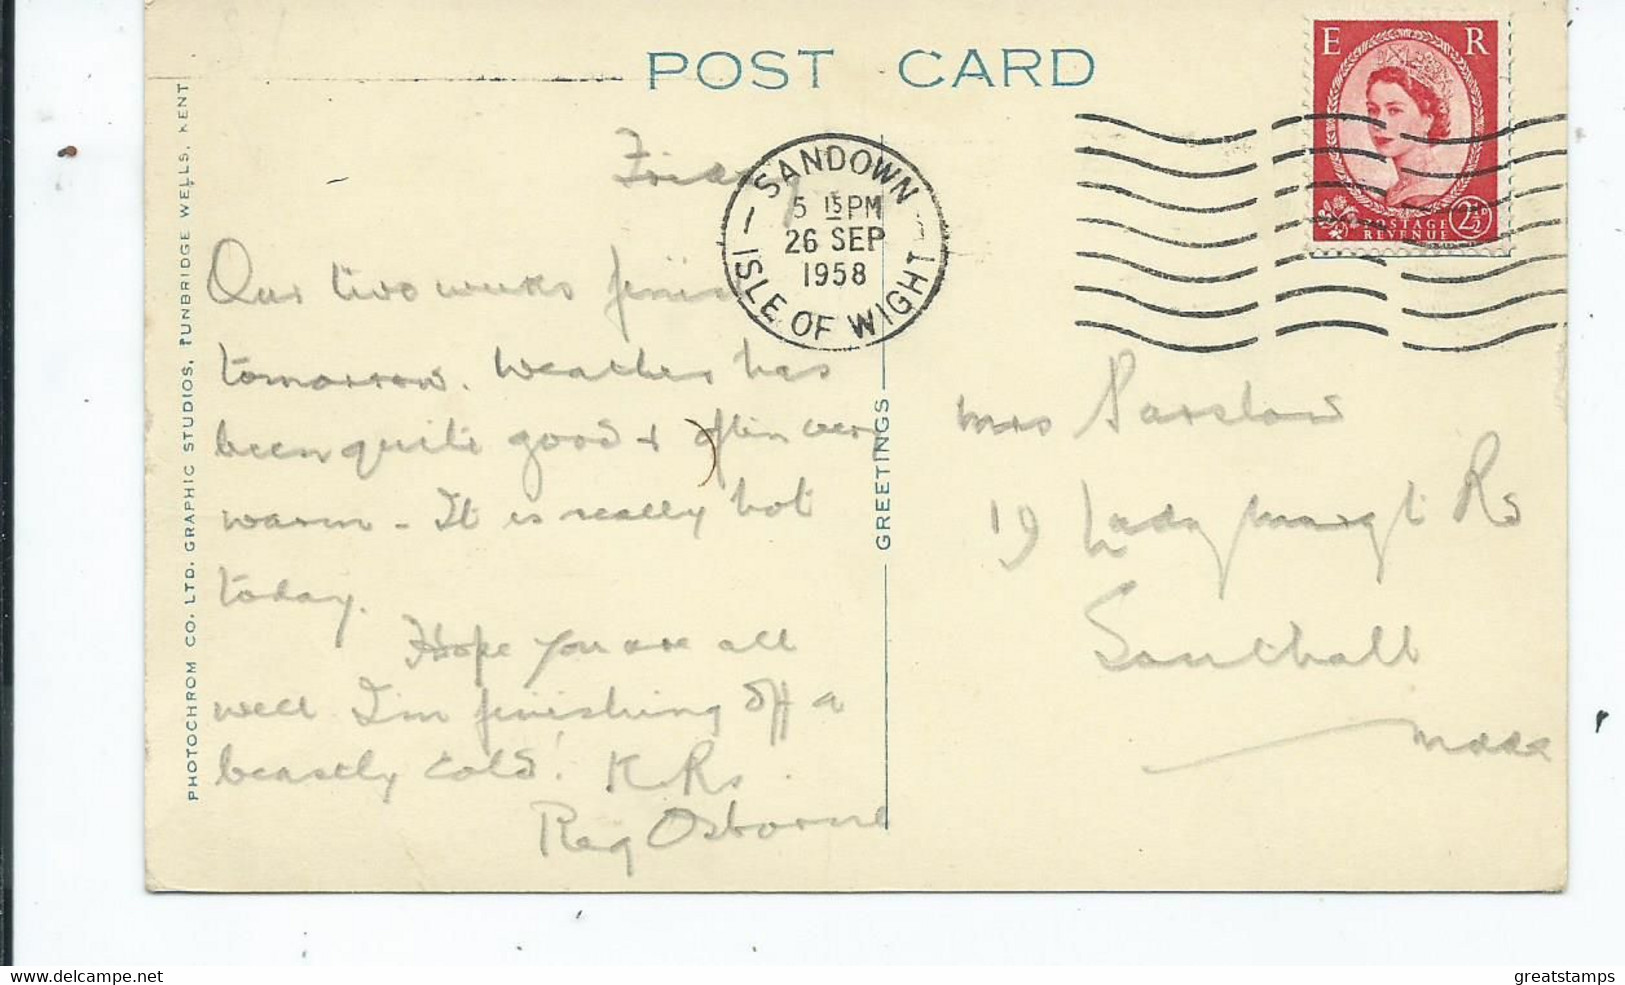 POST CARD
E R
POSTAGE
REVENUE
2½D
SANDOWN
5 15 PM
26 SEP
1958
ISLE OF WIGHT
Friday
Our two weeks finish
tomorrow. Weather has
been quite good & often very
warm - It is really hot
today.
Hope you are all
well I'm finishing off a
beastly cold! K Rs.
Reg Osborne
GREETINGS
Mrs Parslow
19 Lady Margt Rd
Southall
Mddx
PHOTOCHROM CO. LTD. GRAPHIC STUDIOS, TUNBRIDGE WELLS, KENT
www.delcampe.net
greatstamps